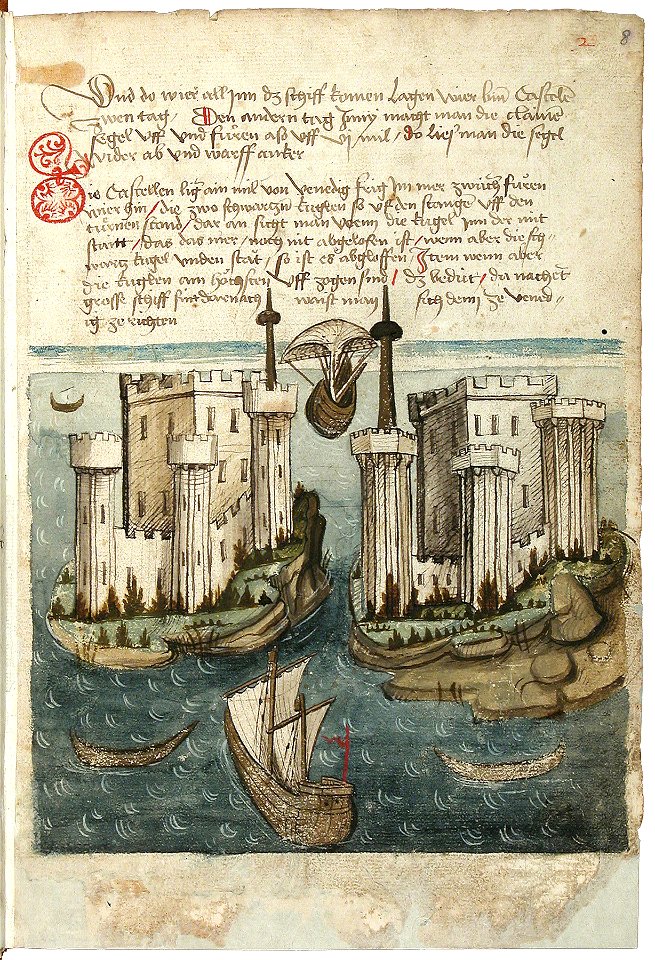 2 8
Vnd do wier all Jnn dz schiff komen Lagen wier bim Castele
zwen tag / Den andern tag Jnny macht man die clainen
segel vff vnd fuͤren aß vff vj mil / do lies man die segel
wider ab vnd warff ancker
Die Castellen ligt ain mil von venedig
wier hin / die zwo schwartzen kuglen so vff den stangen vff den
tuͤrnen stand / dar an sicht man wenn die kugel Jnn der mit
statt / das das mer noch nit abgelofen ist / wenn aber die sch
wartz kugel vnden stat / so ist es abgloffen / Jtem wenn aber
die kuglen am hoͤchsten vff zogen sind / dz beduͤt / da nachet
grosse schiff / man sich denn ze vened
ig ze richten